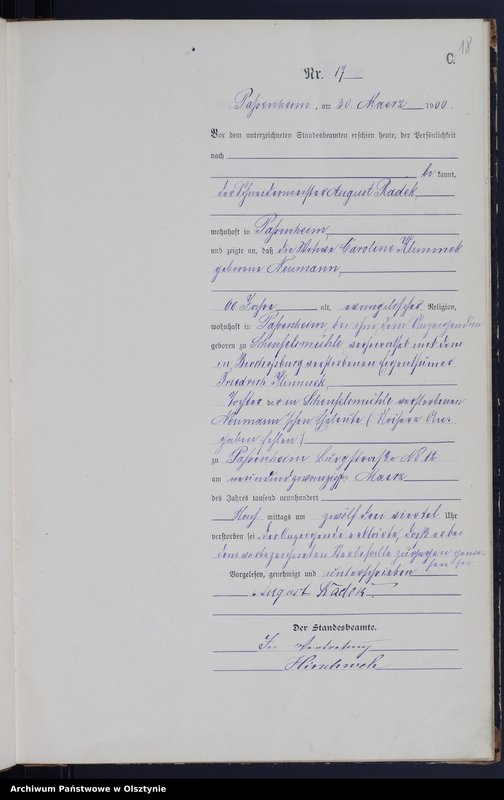 18
C.
Nr. 17
Passenheim, am 30. Maerz 1900.
Vor dem unterzeichneten Standesbeamten erschien heute, der Persönlichkeit
nach
be kannt,
der Schneidermeister August Radek
wohnhaft in Passenheim,
und zeigte an, daß die Witwe Caroline Klimmek
geborene Neumann,
60 Jahre alt, evangelischer Religion,
wohnhaft in Passenheim, bei ihm dem Anzeigenden
geboren zu Scheufelsmühle, verheirathet mit dem
in verstorbenen Eigenthümer
Friedrich Klimmek
Tochter der in Scheufelsmühle verstorbenen
Neumann'schen Eheleute (Nähere An-
gaben fehlen)
zu Passenheim Burgstraße No 12
am neunundzwanzigsten Maerz
des Jahres tausend neunhundert
Nach mittags um zwölf drei viertel Uhr
verstorben sei. Der Anzeigende erklärte, daß er bei
dem vorbezeichneten Sterbefalle zugegen gewe-
sen sei.
Vorgelesen, genehmigt und unterschrieben
August Radek.
Der Standesbeamte.
In Vertretung
Archiwum Państwowe w Olsztynie